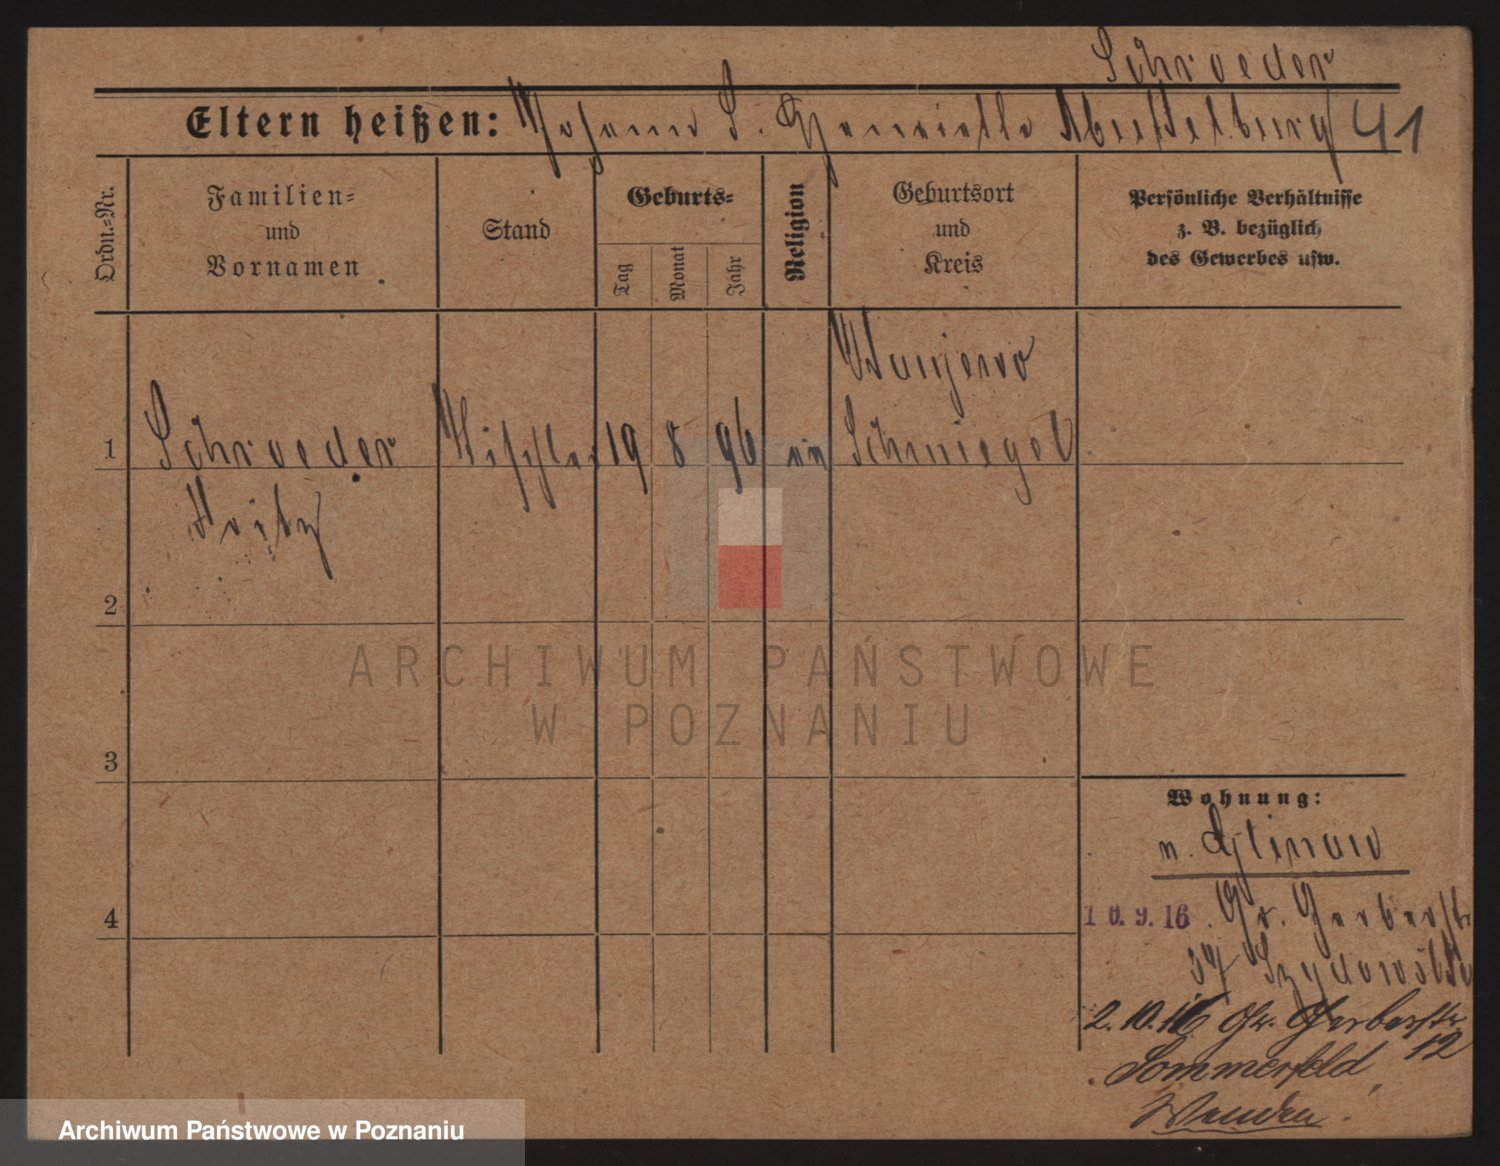 Schroeder
Eltern heißen: Johann S. Henriette 41
Ordn.-Nr.
Familien-
und
Vornamen
Stand
Geburts-
Tag
Monat
Jahr
Religion
Geburtsort
und
Kreis
Persönliche Verhältnisse
z. B. bezüglich
des Gewerbes usw.
1
Schroeder
Fritz
Tischler
19 8 96
Schmiegel
2
3
4
Wohnung:
n. Glinau
10.9.16. Gr. Gerberstr
b/ Szydowski
2.10.16 Gr. Gerberstr
12
Sommerfeld
Wenden!
ARCHIWUM PAŃSTWOWE
W POZNANIU
Archiwum Państwowe w Poznaniu